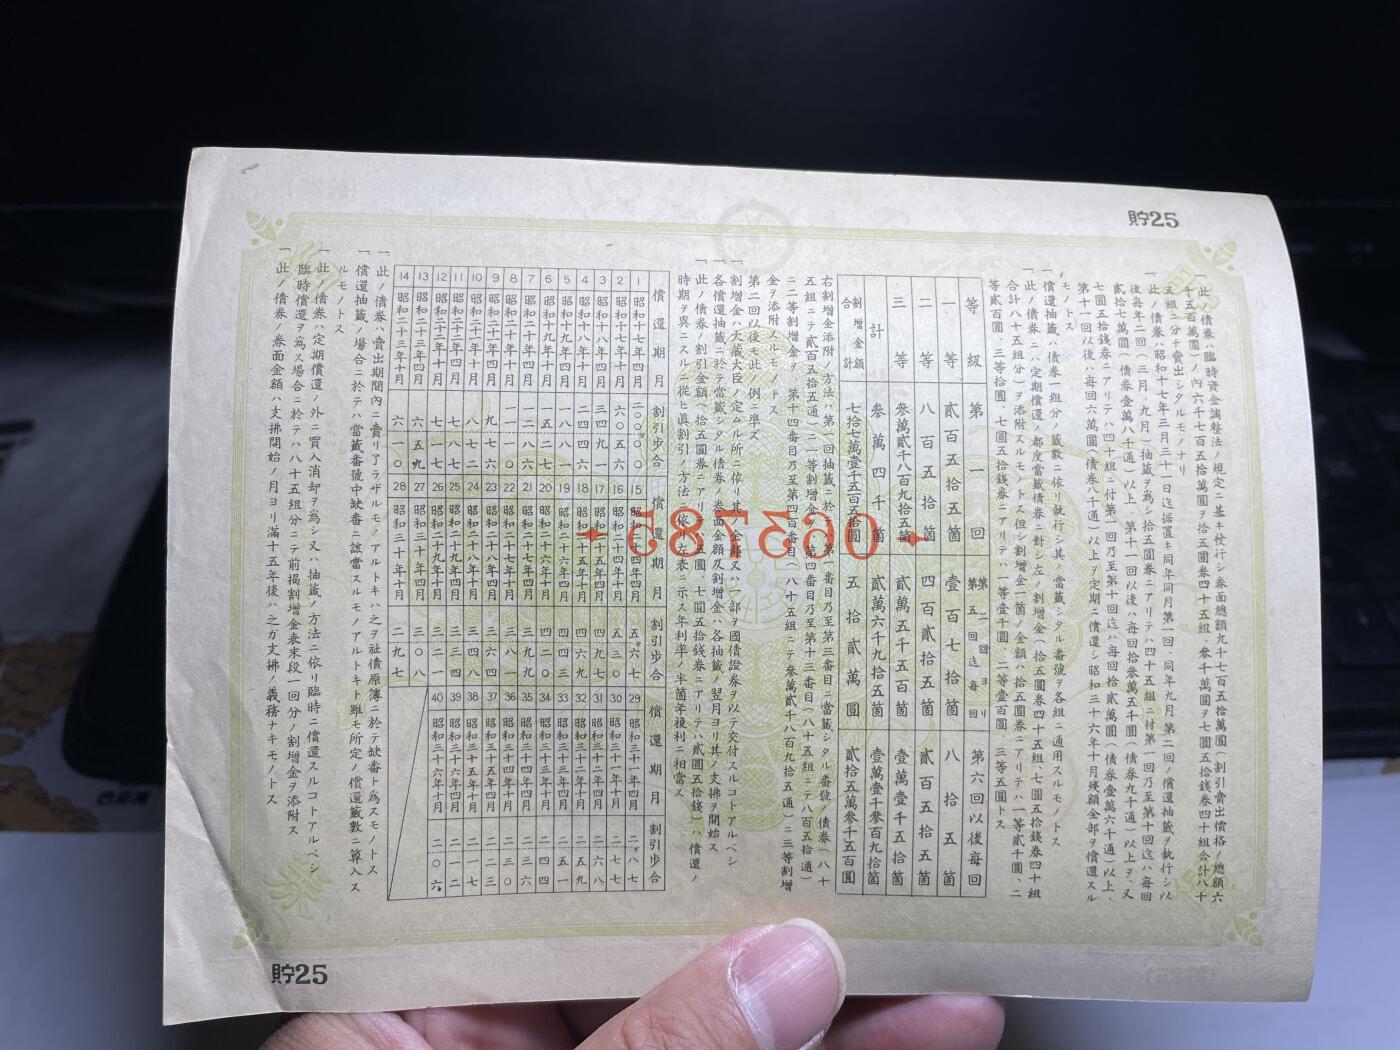 貯25
一 此ノ債券ハ臨時資金調整法ノ規定ニ基キ發行シ券面總額九千七百七五拾萬圓(割引賣出價格ノ總額六
千五百萬圓)ノ內六千七百五拾萬圓ヲ拾五圓券四十五組、參千萬圓ヲ七圓五拾錢券四十組合計八十
五組ニ分チ賣出シタルモノナリ
一 此ノ債券ハ昭和十七年三月三十一日迄据置キ同年同月第一回、同年九月第二回ノ償還抽籤ヲ執行シ以
後每年二回(三月、九月)抽籤ヲ爲シ拾五圓券ニアリテハ四十五組ニ付第一回乃至第十回迄ハ每回
貳拾七萬圓(債券壹萬八千通)以上、第十一回以後ハ每回拾參萬五千圓(債券九千通)以上ヲ、又
七圓五拾錢券ニアリテハ四十組ニ付第一回乃至第十回迄ハ每回拾貳萬圓(債券壹萬六千通)以上、
第十一回以後ハ每回六萬圓(債券八千通)以上ヲ定期ニ償還シ昭和三十六年十月殘額全部ヲ償還スル
モノトス
一 償還抽籤ハ債券一組分ノ籤數ニ依リ執行シ其ノ當籤シタル番號ヲ各組ニ通用スルモノトス
一 此ノ債券ニハ定期償還ノ都度當籤債券ニ對シ左ノ割增金(拾五圓券四十五組、七圓五拾錢券四十組
合計八十五組分)ヲ添附スルモノトス但シ割增金一箇ノ金額ハ拾五圓券ニアリテハ一等貳千圓、二
等貳百圓、三等拾圓、七圓五拾錢券ニアリテハ一等壹千圓、二等壹百圓、三等五圓トス
等級 第一回 第二回ヨリ第五回迄每回 第六回以後每回
一等 貳百五拾五箇 壹百七拾箇 八拾五箇
二等 八百五拾箇 四百貳拾五箇 貳百五拾五箇
三等 參萬貳千八百九拾五箇 貳萬五千五百箇 壹萬壹千五拾箇
計 參萬四千箇 貳萬六千九拾五箇 壹萬壹千參百九拾箇
割增金額合計 七拾七萬壹千五百五拾圓 五拾貳萬圓 貳拾五萬參千五百圓
右割增金添附ノ方法ハ第一回抽籤ニ於テハ第一番目乃至第三番目ニ當籤シタル番號ノ債券(八十
五組ニテ貳百五拾五通)ニ一等割增金ヲ、第四番目乃至第十三番目(八十五組ニテ八百五拾通)
ニ二等割增金ヲ、第十四番目乃至第四百番目(八十五組ニテ參萬貳千八百九拾五通)ニ三等割增
金ヲ添附スルモノトス
第二回以後モ此ノ例ニ準ズ
一 割增金ハ大藏大臣ノ定ムル所ニ依リ其ノ全部又ハ一部ヲ國債證券ヲ以テ交付スルコトアルベシ
一 各償還抽籤ニ於テ當籤シタル債券ノ券面金額及割增金ハ各抽籤ノ翌月ヨリ其ノ支拂ヲ開始ス
一 此ノ債券ノ割引金額(拾五圓券ニアリテハ五圓、七圓五拾錢券ニアリテハ貳圓五拾錢)ハ償還ノ
時期ヲ異ニスルニ從ヒ眞割引ノ方法ニ依リ左表ニ示ス年利率ノ半箇年複利ニ相當ス
償還期月 割引步合
1 昭和十七年四月 二〇〇〇〇
2 昭和十七年十月 六〇五六
3 昭和十八年四月 三四九一
4 昭和十八年十月 二四四六
5 昭和十九年四月 一八八一
6 昭和十九年十月 一五二七
7 昭和二十年四月 一二八六
8 昭和二十年十月 一一一〇
9 昭和二十一年四月 九七六
10 昭和二十一年十月 八七一
11 昭和二十二年四月 七八七
12 昭和二十二年十月 七一七
13 昭和二十三年四月 六五九
14 昭和二十三年十月 六一〇
償還期月 割引步合
15 昭和二十四年四月 五六七
16 昭和二十四年十月 五三〇
17 昭和二十五年四月 四九七
18 昭和二十五年十月 四六九
19 昭和二十六年四月 四四三
20 昭和二十六年十月 四二〇
21 昭和二十七年四月 三九九
22 昭和二十七年十月 三八一
23 昭和二十八年四月 三六四
24 昭和二十八年十月
25 昭和二十九年四月 三三四
26 昭和二十九年十月 三二一
27 昭和三十年四月 三〇八
28 昭和三十年十月 二九七
償還期月 割引步合
29 昭和三十一年四月 二八七
30 昭和三十一年十月 二七七
31 昭和三十二年四月 二六八
32 昭和三十二年十月 二五九
33 昭和三十三年四月 二五一
34 昭和三十三年十月 二四四
35 昭和三十四年四月 二三六
36 昭和三十四年十月 二三〇
37 昭和三十五年四月 二二三
38 昭和三十五年十月 二一七
39 昭和三十六年四月 二一二
40 昭和三十六年十月 二〇六
一 此ノ債券ハ賣出期間內ニ賣リ了ラザルモノアルトキハ之ヲ社債原簿ニ於テ缺番ト爲スモノトス
償還抽籤ノ場合ニ於テハ當籤番號中缺番ニ該當スルモノアルトキト雖モ所定ノ償還籤數ニ算入ス
ルモノトス
一 此ノ債券ハ定期償還ノ外ニ買入消却ヲ爲シ又ハ抽籤ノ方法ニ依リ臨時ニ償還スルコトアルベシ
臨時償還ヲ爲ス場合ニ於テハ八十五組分ニテ前揭割增金表末段一回分ノ割增金ヲ添附ス
一 此ノ債券ノ券面金額ハ支拂開始ノ月ヨリ滿十五年後ハ之ガ支拂ノ義務ナキモノトス
063785
貯25